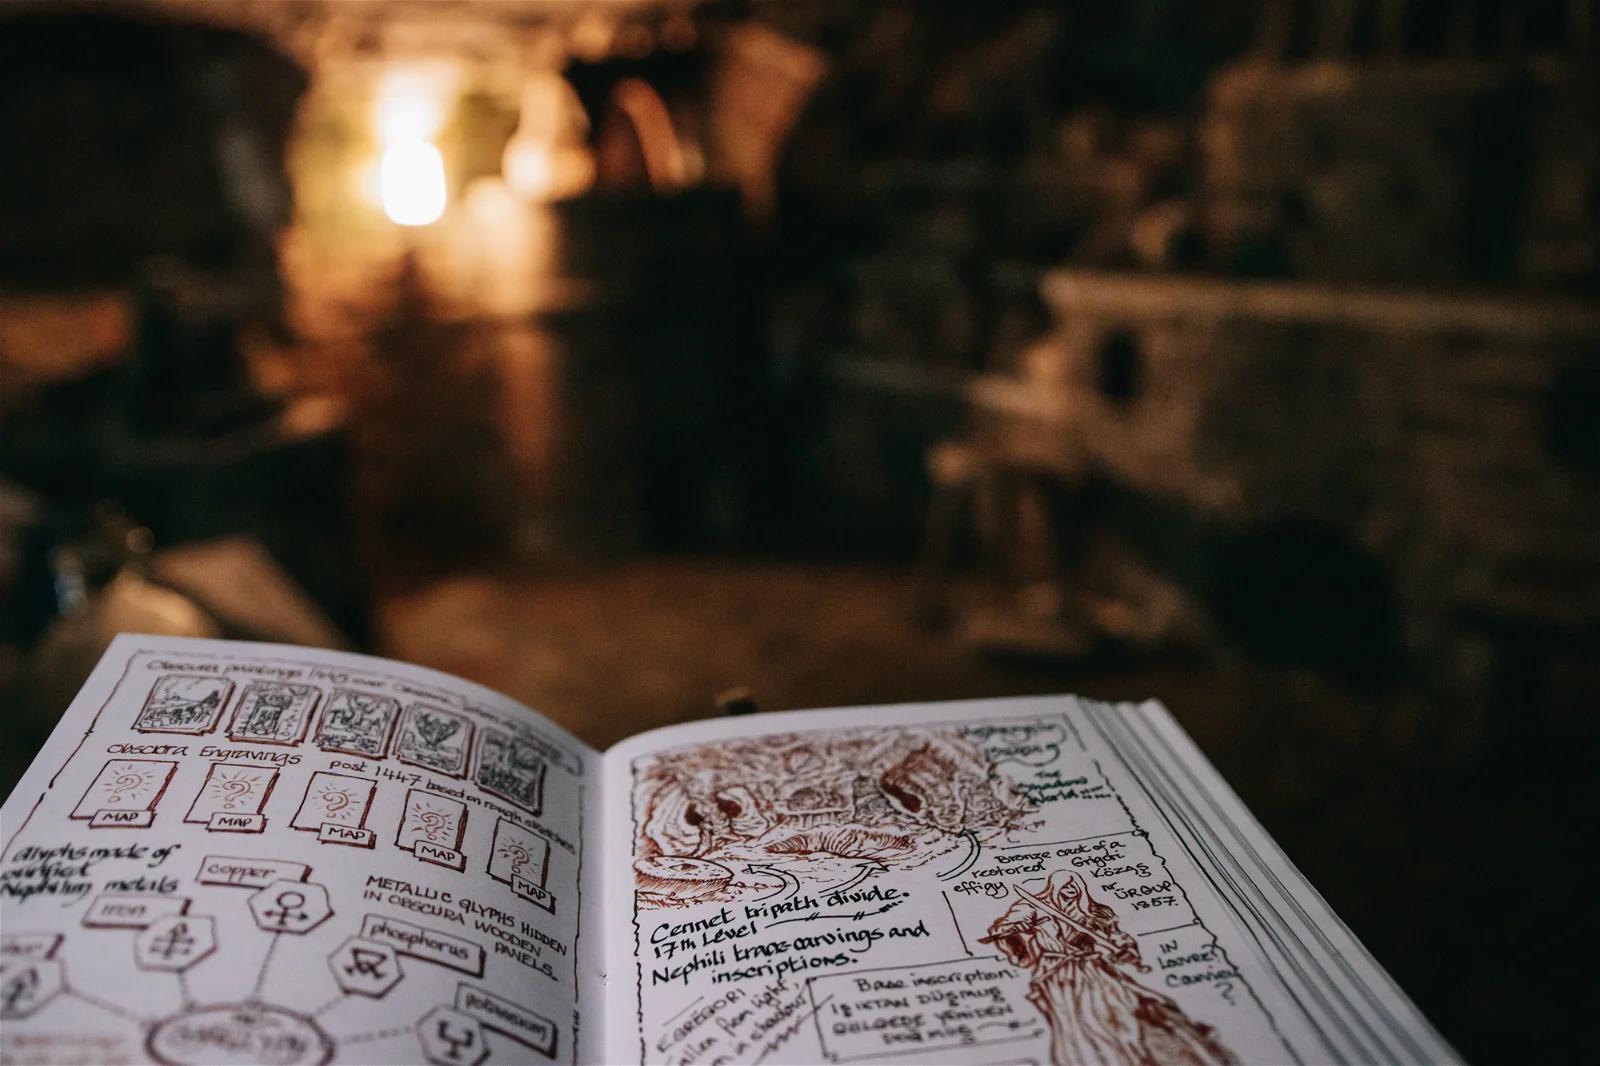 Obscura paintings 1445
Obscura Engravings post 1447 based on rough sketches
MAP
MAP
MAP
MAP
MAP
Glyphs made of
purified
Nephilim metals
copper
Iron
METALLIC GLYPHS HIDDEN
IN OBSCURA WOODEN
PANELS.
phosphorus
potassium
The
Shadow
World
Cennet tripath divide.
17th Level
Nephili trace-carvings and
inscriptions.
Bronze cast of a
restored Grigori
effigy Közaş
Nr ÜRGÜP
1857.
IN
Louvre?
Base inscription:
IŞIKTAN DÜŞMÜŞ
GÖLGEDE YENİDEN
EGREGORI
from light,
in shadow